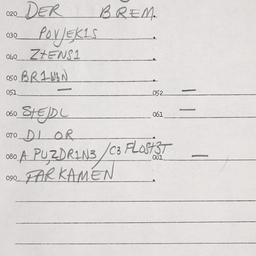 020 DER BREM.
030 POVJEK1S
040 Z+ENS1
050 BR1
051 — 052 —
060 S+EJDL 061 —
070 D1 OR
080 A PUZDR1N3/C3 FLOSt3T 001 —
090 FARKAMEN